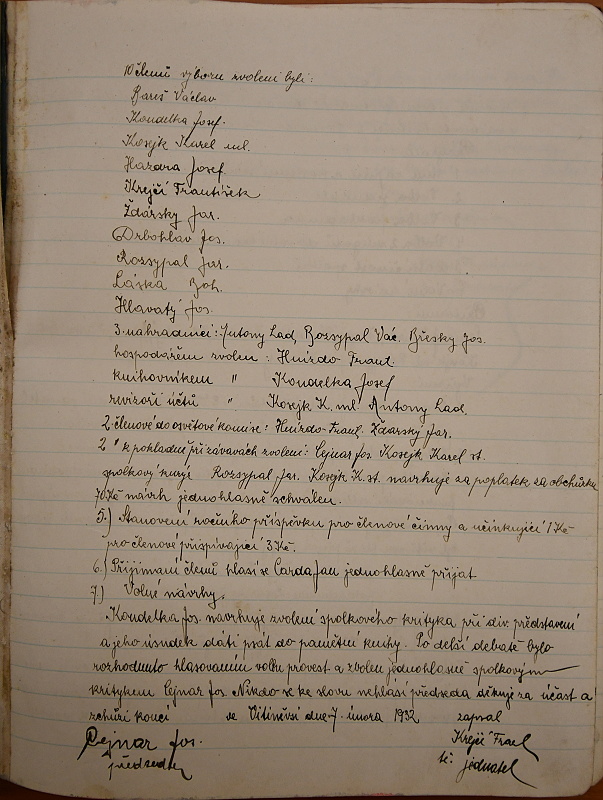 10 členů výboru zvoleni byli:
Bareš Václav
Koudelka Josef.
Kosejk Karel ml.
Hazdra Josef.
Krejčí František
Ždárský Jar.
Drbohlav Jos.
Rozsypal Jar.
Láska Boh.
Hlavatý Jos.
3 náhradníci: Antony Lad, Rozsypal Vác. Břesky Jos.
hospodářem zvolen: Hnízdo Frant.
knihovníkem " Koudelka Josef
revizoři účtů " Kosejk K. ml. Antony Lad.
2 členové do osvětové komise: Hnízdo Frant. Ždárský Jar.
2 " k pokladně při zábavách zvoleni: Cejnar Jos. Kosejk Karel st.
spolkový Rozsypal Jar. Kosejk K. st. navrhuje za poplatek za obchůzku
70 Kč návrh jednohlasně schválen.
5.) Stanovení ročního příspěvku pro členové činny a učinkující 1 Kč
pro členové přispívající 3 Kč.
6.) Přijímaní členů hlasí se Carda Jan jednohlasně přijat
7.) Volné návrhy.
Koudelka Jos. navrhuje zvolení spolkového krityka při div. představení
a jeho úsudek dáti psát do pamětní knihy. Po delší debatě bylo
rozhodnuto hlasovaním volbu provest a zvolen jednohlasně spolkovým
kritykem Cejnar Jos. Nikdo se ke slovu nehlásí předseda děkuje za účast a
schůzi koučí ve Vitiněvsi dne 7. února 1932 zapsal
Cejnar Jos. Krejčí Frant
předseda t.č. jednatel